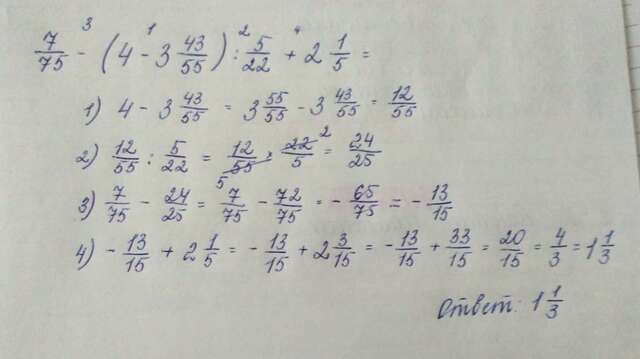 7/75 - (4 - 3 43/55) : 5/22 + 2 1/5 =
1) 4 - 3 43/55 = 3 55/55 - 3 43/55 = 12/55
2) 12/55 : 5/22 = 12/55 · 22/5 = 24/25
3) 7/75 - 24/25 = 7/75 - 72/75 = - 65/75 = - 13/15
4) - 13/15 + 2 1/5 = - 13/15 + 2 3/15 = - 13/15 + 33/15 = 20/15 = 4/3 = 1 1/3
Ответ: 1 1/3